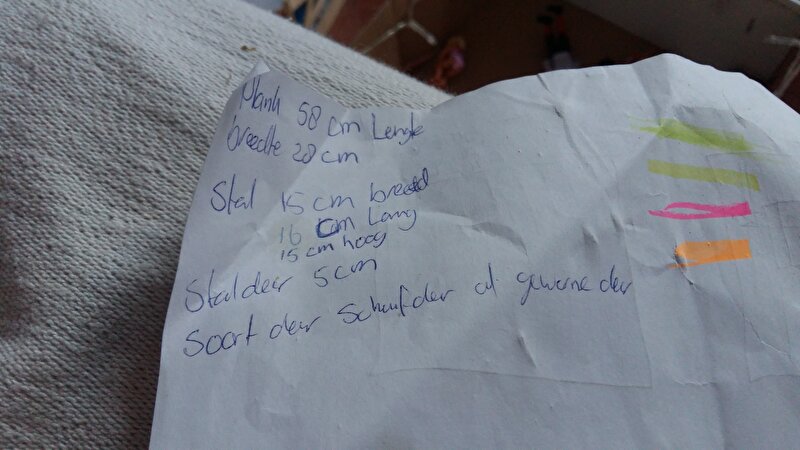 Plank 58 cm Lengte
breedte 28 cm
Stal 15 cm breed
16 cm Lang
15 cm hoog
Staldeur 5 cm
Soort deur Schuifdeur of gewone deur